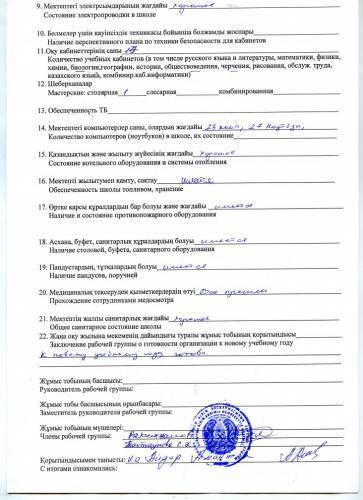 9. Мектептегі электрсымдарының жағдайы хорошее
Состояние электропроводки в школе
10. Бөлмелер үшін қауіпсіздік техникасы бойынша болжамды жоспары
Наличие перспективного плана по техники безопасности для кабинетов
11.Оқу кабинеттерінің саны 17
Количество учебных кабинетов (в том числе русского языка и литературы, математики, физики,
химии, биологии,географии, истории, обществоведения, черчения, рисования, обслуж. труда,
казахского языка, комбинир.каб.информатики)
12. Шеберханалар
Мастерские: столярная 1 слесарная комбинированная
13. Обеспеченность ТБ
14. Мектептегі компьютерлер саны, олардың жағдайы 23 комп, 27
Количество компьютеров (ноутбуков) в школе, их состояние
15. Қазандықтың және жылыту жүйесінің жағдайы хорошее
Состояние котельного оборудования и системы отопления
16. Мектепті жылытумен қамту, сақтау имеется
Обеспеченность школы топливом, хранение
17. Өртке қарсы құралдардың бар болуы және жағдайы имеется
Наличие и состояние противопожарного оборудования
18. Асхана, буфет, санитарлық құралдардың болуы имеется
Наличие столовой, буфета, санитарного оборудования
19. Пандустардың, тұтқалардың болуы имеется
Наличие пандусов, поручней
20. Медициналық тексеруден қызметкерлердің өтуі Все прошли
Прохождение сотрудниками медосмотра
21. Мектептің жалпы санитарлық жағдайы хорошее
Общее санитарное состояние школы
22. Жаңа оқу жылына мекеменің дайындығы туралы жұмыс тобының қорытындысы
Заключение рабочей группы о готовности организации к новому учебному году
К новому учебному году готова.
Жұмыс тобының басшысы:
Руководитель рабочей группы:
Жұмыс тобы басшысының орынбасары:
Заместитель руководителя рабочей группы:
Жұмыс тобының мүшелері:
Члены рабочей группы:
Қорытындысымен танысты:
С итогами ознакомились: